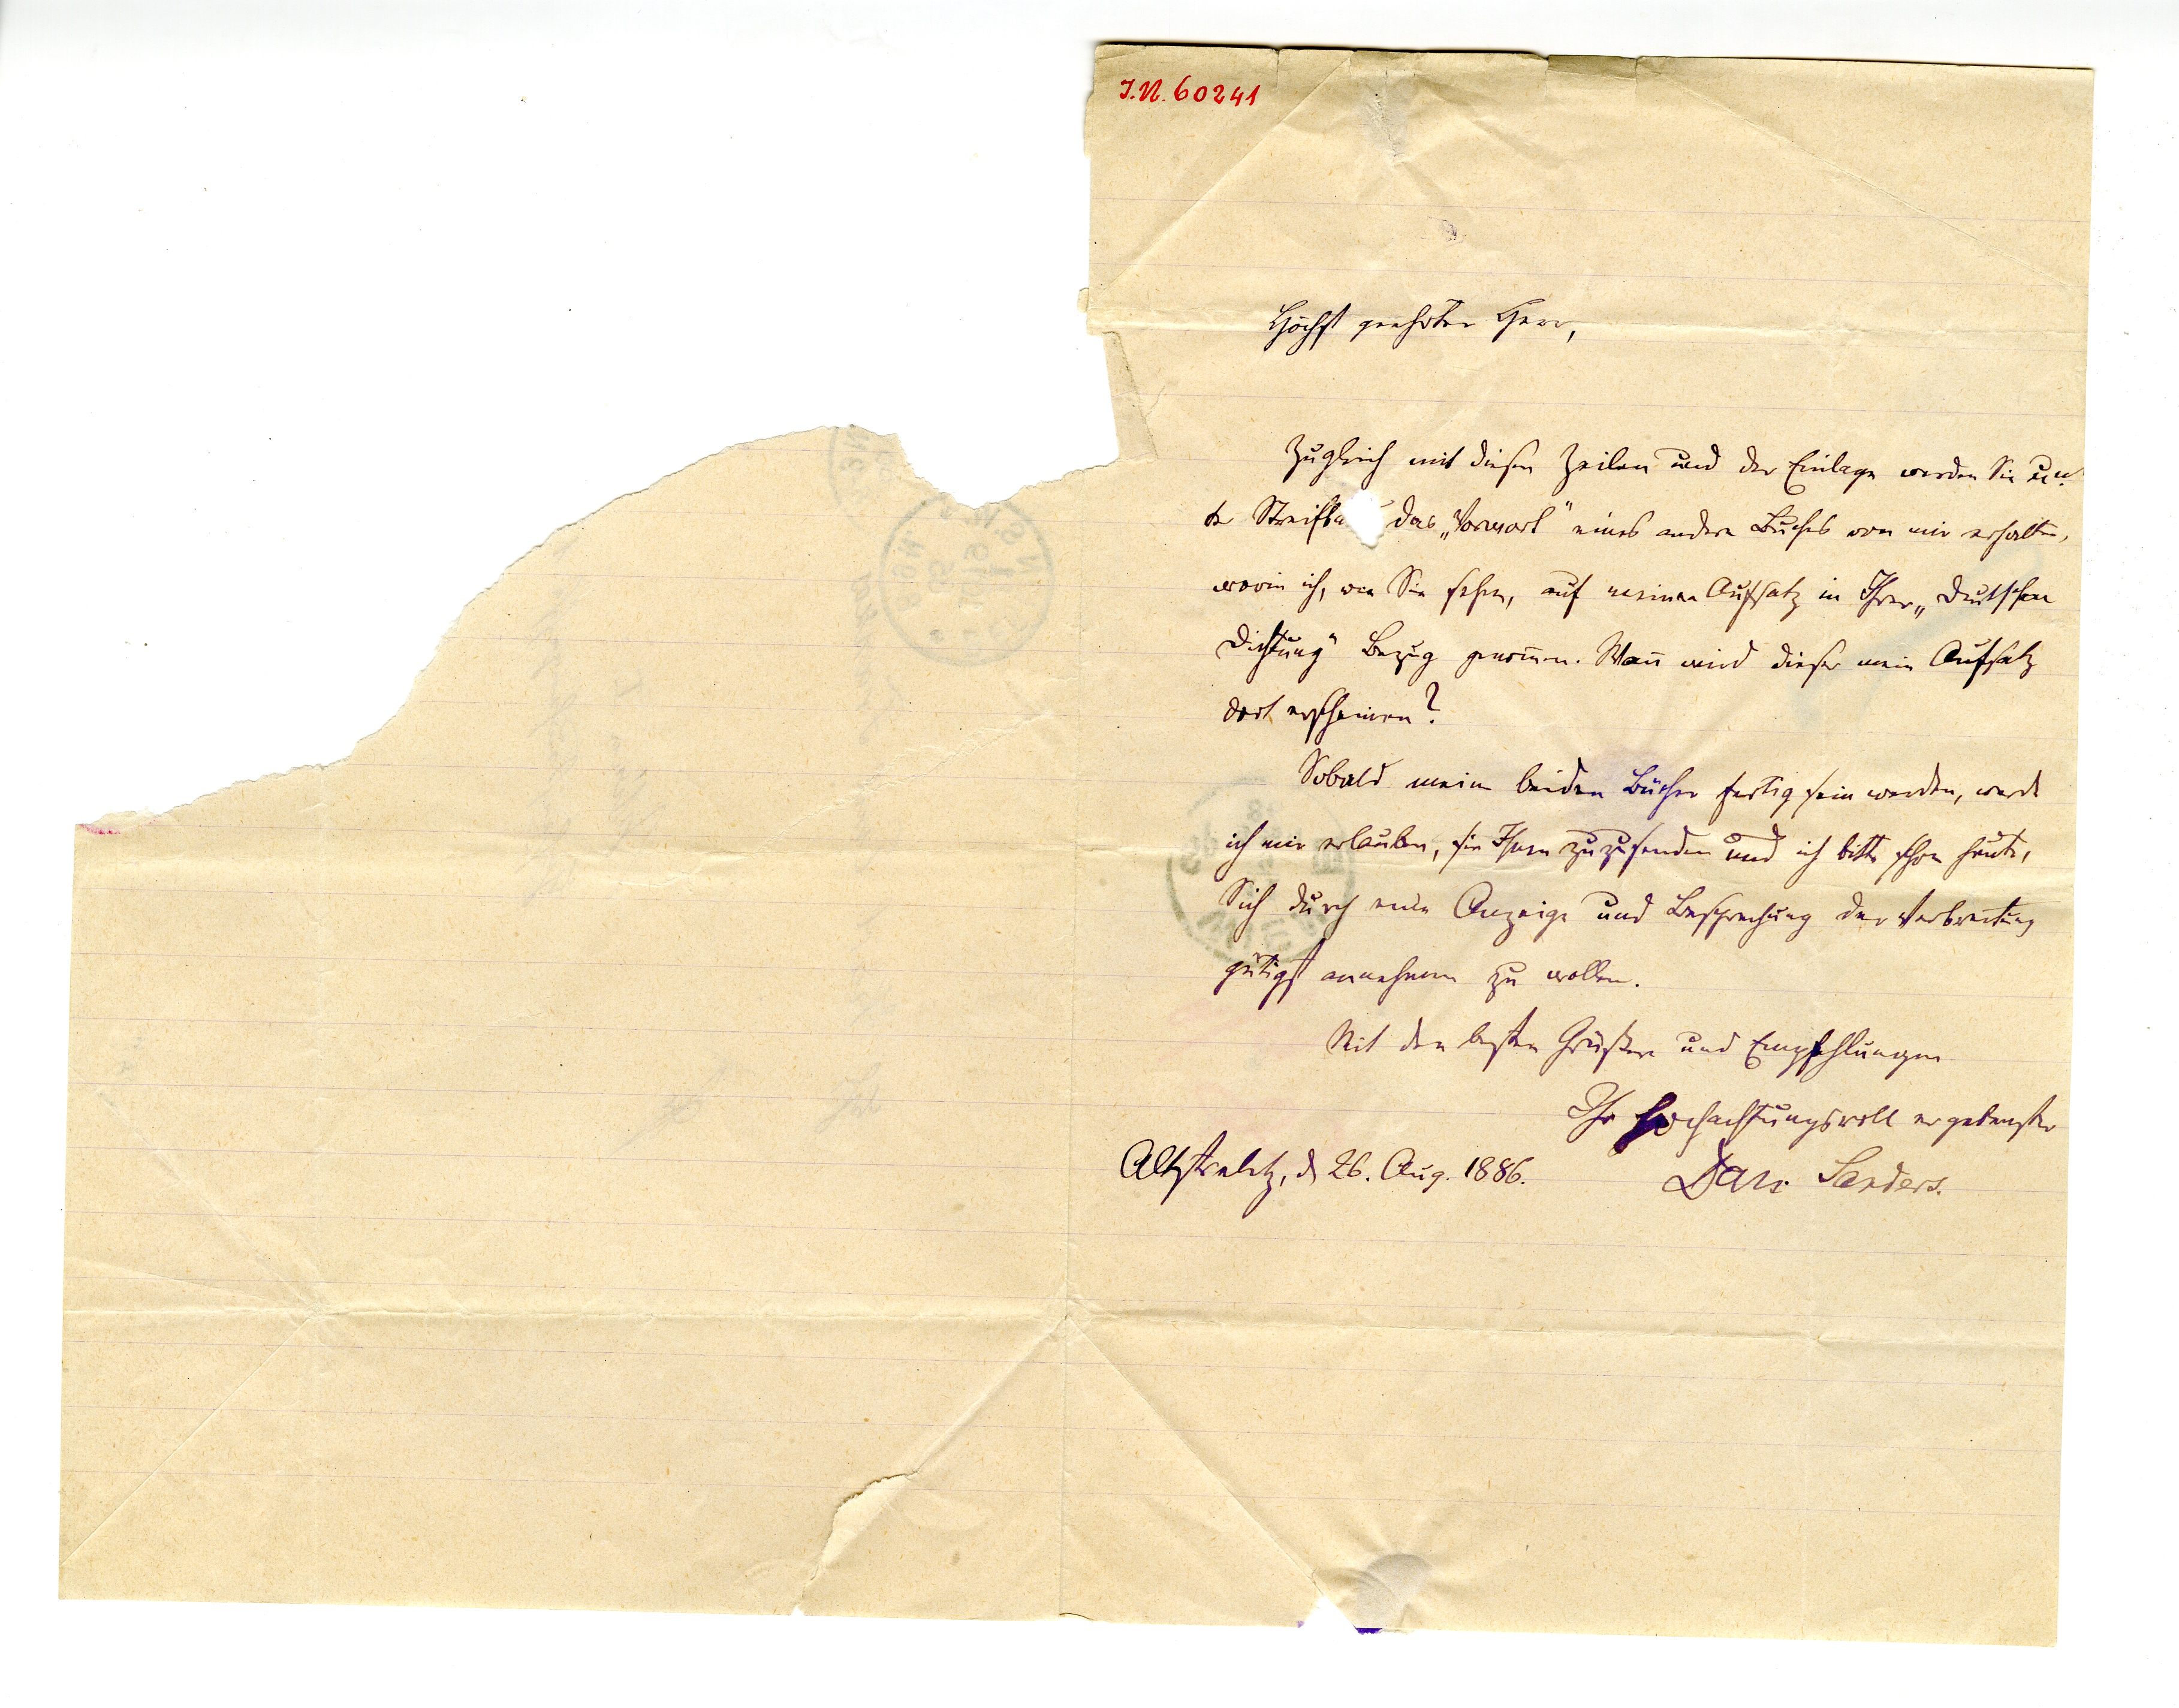 J.N. 60241
Höchst geehrter Herr,
Zugleich mit diesen Zeilen und der Einlage werden Sie un-
ter Streifba das „Vorwort" eines andern Buches von mir erhalten,
worin ich, wie Sie sehen, auf meinen Aufsatz in Ihrer „Deutschen
Dichtung" Bezug genom̄en. Wan̄ wird dieser mein Aufsatz
dort erscheinen?
Sobald meine beiden Bücher fertig sein werden, werde
ich mir erlauben, sie Ihnen zuzusenden und ich bitte schon heute,
Sich durch eine Anzeige und Besprechung der Verbreitung
gütigst annehmen zu wollen.
Mit den besten Grüßen und Empfehlungen
Ihr hochachtungsvoll ergebenster
Altstrelitz, d 26. Aug. 1886.
Dan. Sanders.